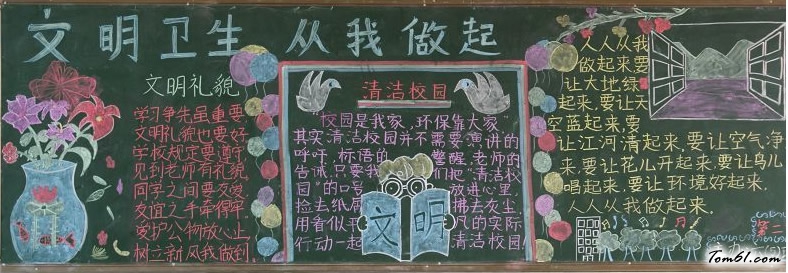 文明卫生 从我做起
文明礼貌
学习争先虽重要
文明礼貌也要好
学校规定要遵守
见到老师有礼貌
同学之间要友爱
友谊之手牵得牢
爱护公物放心上
树立新风我做到
清洁校园
"校园是我家,环保靠大家"
其实清洁校园并不需要演讲的
呼吁,标语的 警醒,老师的
告诫,只要我 们把"清洁校
园"的口号 放进心里,
捡去纸屑 拂去灰尘,
用看似平 凡的实际
行动一起 清洁校园!
文明
人人从我
做起来,要
让大地绿
起来,要让天
空蓝起来,要
让江河清起来,要让空气净
来,要让花儿开起来,要让鸟儿
唱起来,要让环境好起来,
人人从我做起来.
第二
Tom61.com